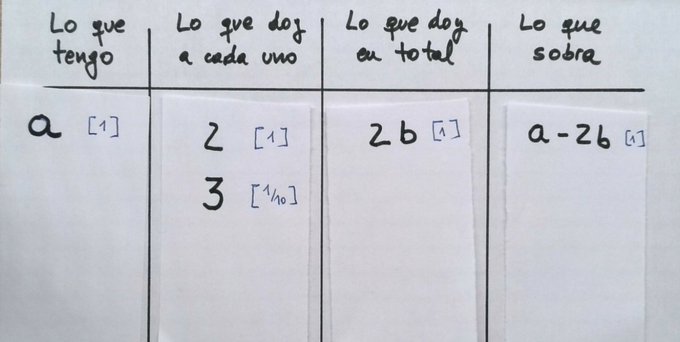 Lo que tengo
Lo que doy a cada uno
Lo que doy en total
Lo que sobra
a [1]
2 [1]
2b [1]
a - 2b [1]
3 [1/10]